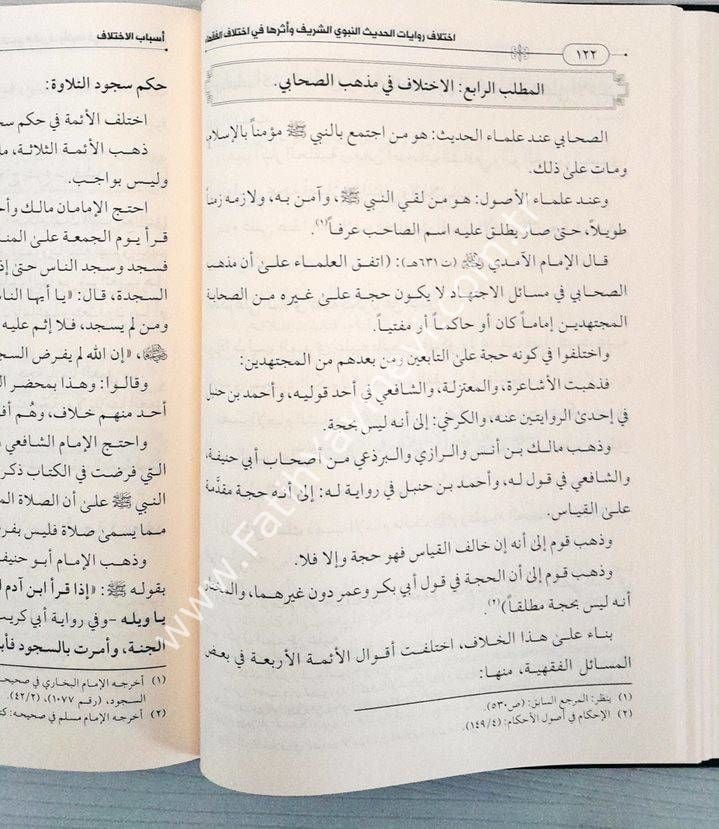 اختلاف روايات الحديث النبوي الشريف وأثرها في اختلاف الفقهاء
١٢٢
المطلب الرابع: الاختلاف في مذهب الصحابي.
الصحابي عند علماء الحديث: هو من اجتمع بالنبي ﷺ مؤمناً بالإسلام
ومات على ذلك.
وعند علماء الأصول: هو من لقي النبي ﷺ، وآمن به، ولازمه زمناً
طويلاً، حتى صار يطلق عليه اسم الصاحب عرفاً(١).
قال الإمام الآمدي (ت ٦٣١هـ): (اتفق العلماء على أن مذهب
الصحابي في مسائل الاجتهاد لا يكون حجة على غيره من الصحابة
المجتهدين إماماً كان أو حاكماً أو مفتياً.
واختلفوا في كونه حجة على التابعين ومن بعدهم من المجتهدين:
فذهبت الأشاعرة، والمعتزلة، والشافعي في أحد قوليه، وأحمد بن حنبل
في إحدى الروايتين عنه، والكرخي: إلى أنه ليس بحجة.
وذهب مالك بن أنس والرازي والبرذعي من أصحاب أبي حنيفة،
والشافعي في قول له، وأحمد بن حنبل في رواية له: إلى أنه حجة مقدَّمة
على القياس.
وذهب قوم إلى أنه إن خالف القياس فهو حجة وإلا فلا.
وذهب قوم إلى أن الحجة في قول أبي بكر وعمر دون غيرهما، والمختار
أنه ليس بحجة مطلقاً)(٢).
بناء على هذا الخلاف، اختلفت أقوال الأئمة الأربعة في بعض
المسائل الفقهية، منها:
(١) ينظر: المرجع السابق: (ص٥٣٠).
(٢) الإحكام في أصول الأحكام: (١٤٩/٤).
أسباب الاختلاف
حكم سجود التلاوة:
اختلف الأئمة في حكم
ذهب الأئمة الثلاثة،
وليس بواجب.
احتج الإمامان مالك
قرأ يوم الجمعة على
فسجد وسجد الناس حتى
السجدة، قال: «يا أيها
ومن لم يسجد، فلا إثم عليه
، «إن الله لم يفرض
وقالوا: وهذا بمحضر
أحد منهم خلاف، وهُم
واحتج الإمام الشافعي
التي فرضت في الكتاب
النبي ﷺ على أن الصلاة
مما يسمى صلاة فليس
وذهب الإمام أبو
بقوله ﷺ: «إذا قرأ ابن آدم
يا ويله -وفي رواية أبي
الجنة، وأمرت بالسجود
(١) أخرجه الإمام البخاري في
السجود، (رقم ١٠٧٧)، (٤٢/٢).
(٢) أخرجه الإمام مسلم في صحيحه:
www.FatihYayinevi.com.tr